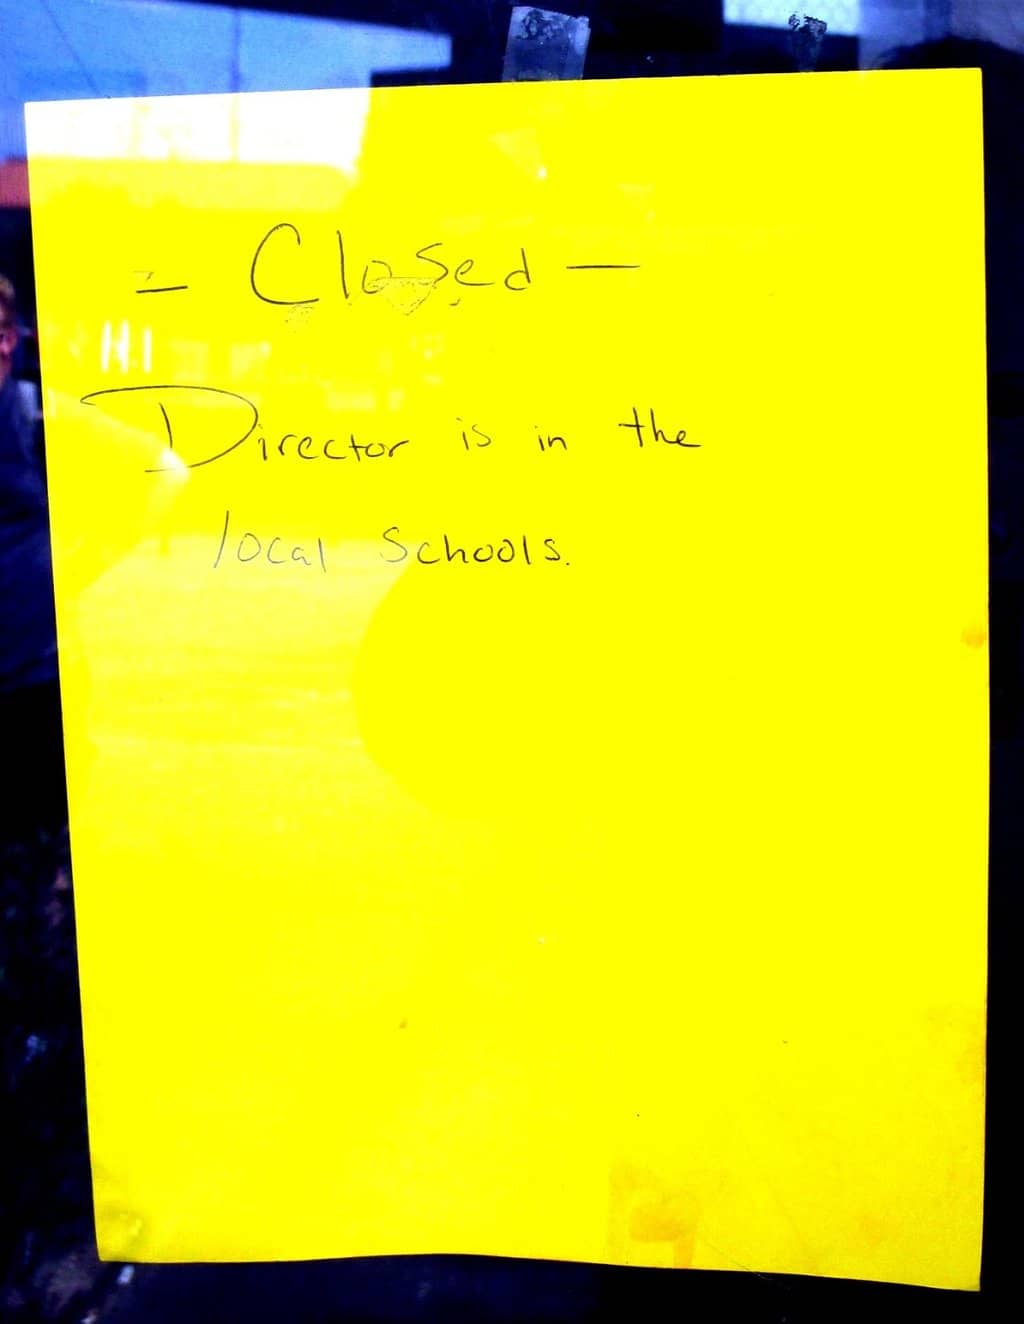 - Closed -
Director is in the
local Schools.